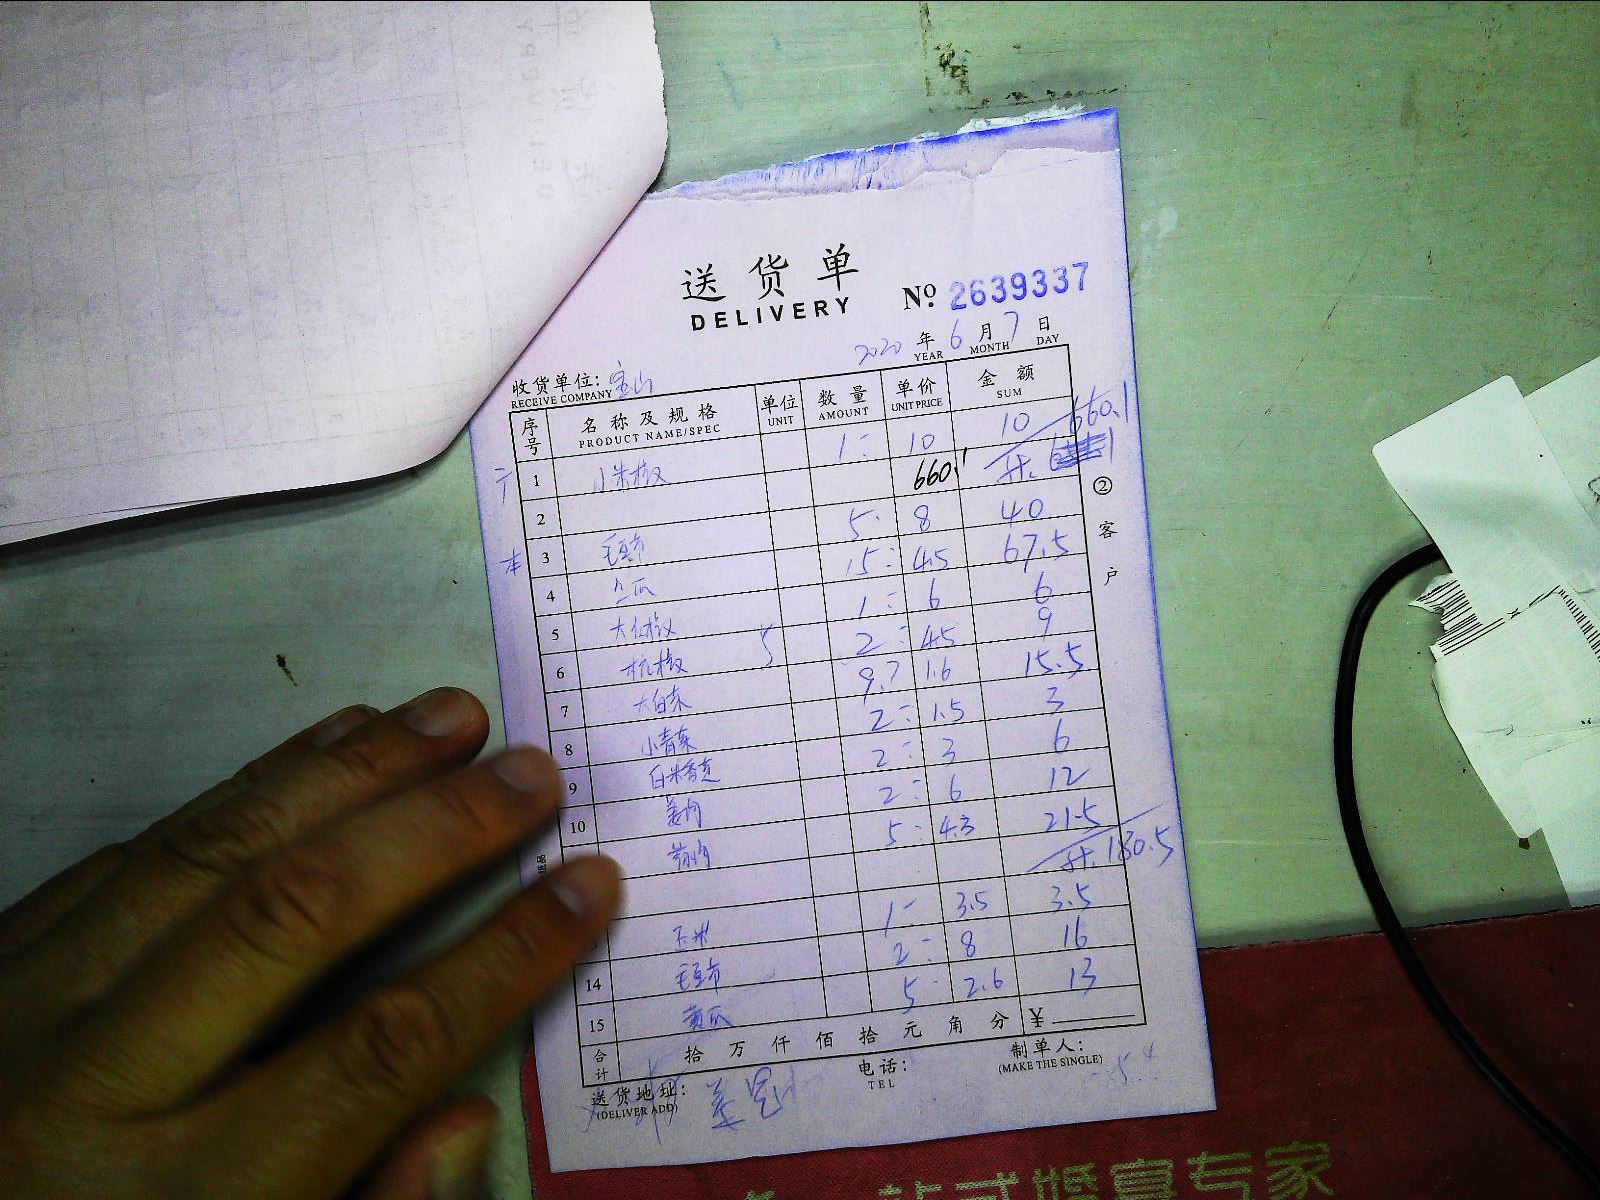 送货单
DELIVERY
No. 2639337
2020 年 6 月 7 日
YEAR MONTH DAY
收货单位: 宝山
RECEIVE COMPANY
序号 名称及规格 单位 数量 单价 金额
PRODUCT NAME/SPEC UNIT AMOUNT UNIT PRICE SUM
1 小米椒 1 10 10
660.1
660.1
2
3 毛豆节 5 8 40
本
4 15 4.5 67.5
5 1 6 6
6 杭椒 2 4.5 9
7 大白菜 9.7 1.6 15.5
8 小青菜 2 1.5 3
9 2 3 6
10 姜肉 2 6 12
5 4.3 21.5
计 180.5
玉米 1 3.5 3.5
14 毛豆节 2 8 16
15 黄瓜 5 2.6 13
合计 拾 万 仟 佰 拾 元 角 分 ¥
送货地址: 电话: 制单人:
(DELIVER ADD) TEL (MAKE THE SINGLE)
② 客户
一站式婚宴专家